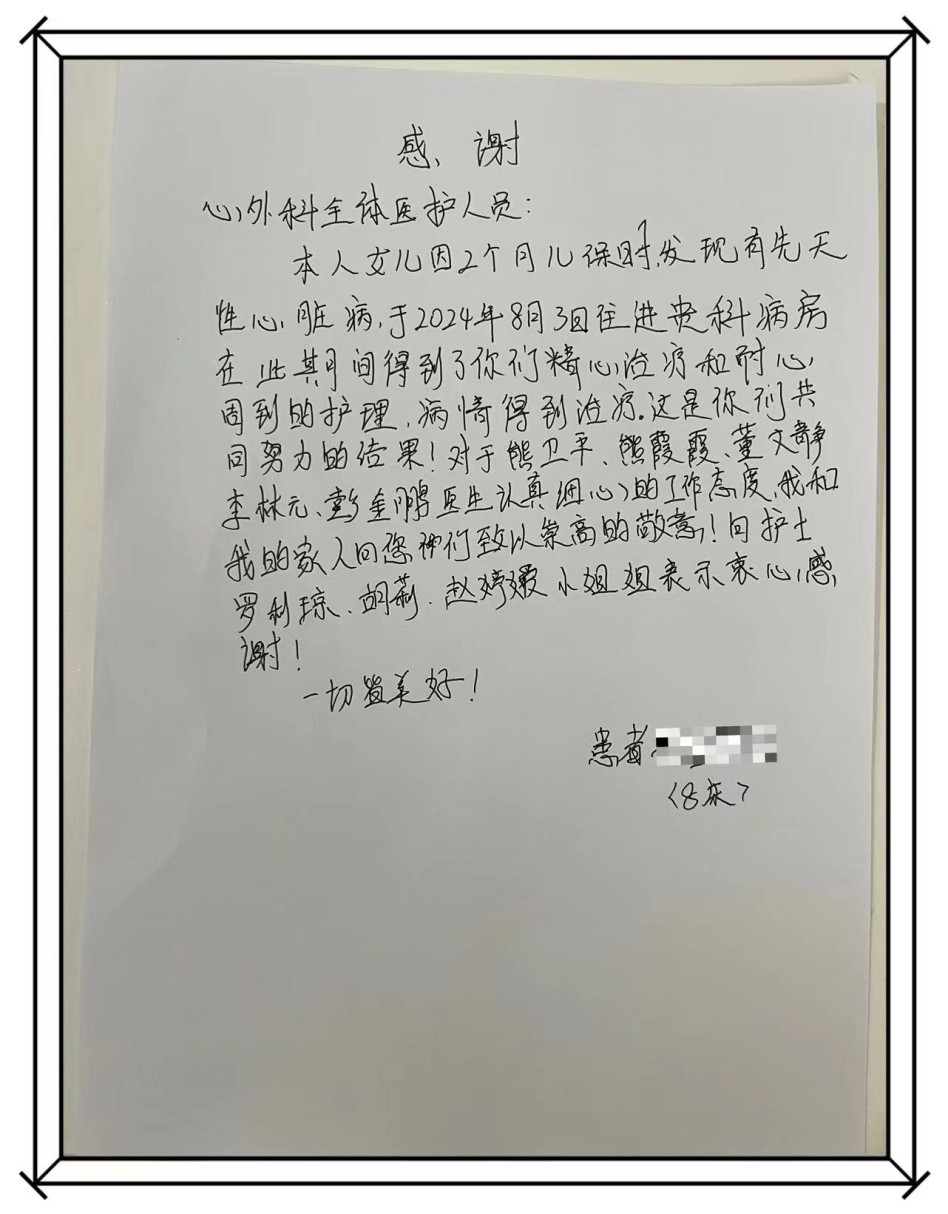 感谢
心外科全体医护人员：
本人女儿因2个月儿保时，发现有先天
性心脏病，于2024年8月3日住进贵科病房
在此其间得到了你们精心治疗和耐心
周到的护理，病情得到治疗。这是你们共
同努力的结果！对于熊卫平、熊霞霞、董文静
李林元、彭金鹏医生认真细心的工作态度，我和
我的家人向您们致以崇高的敬意！向护士
罗利琼、胡莉、赵婷嫒小姐姐表示衷心感
谢！
一切皆美好！
患者
〈8床〉